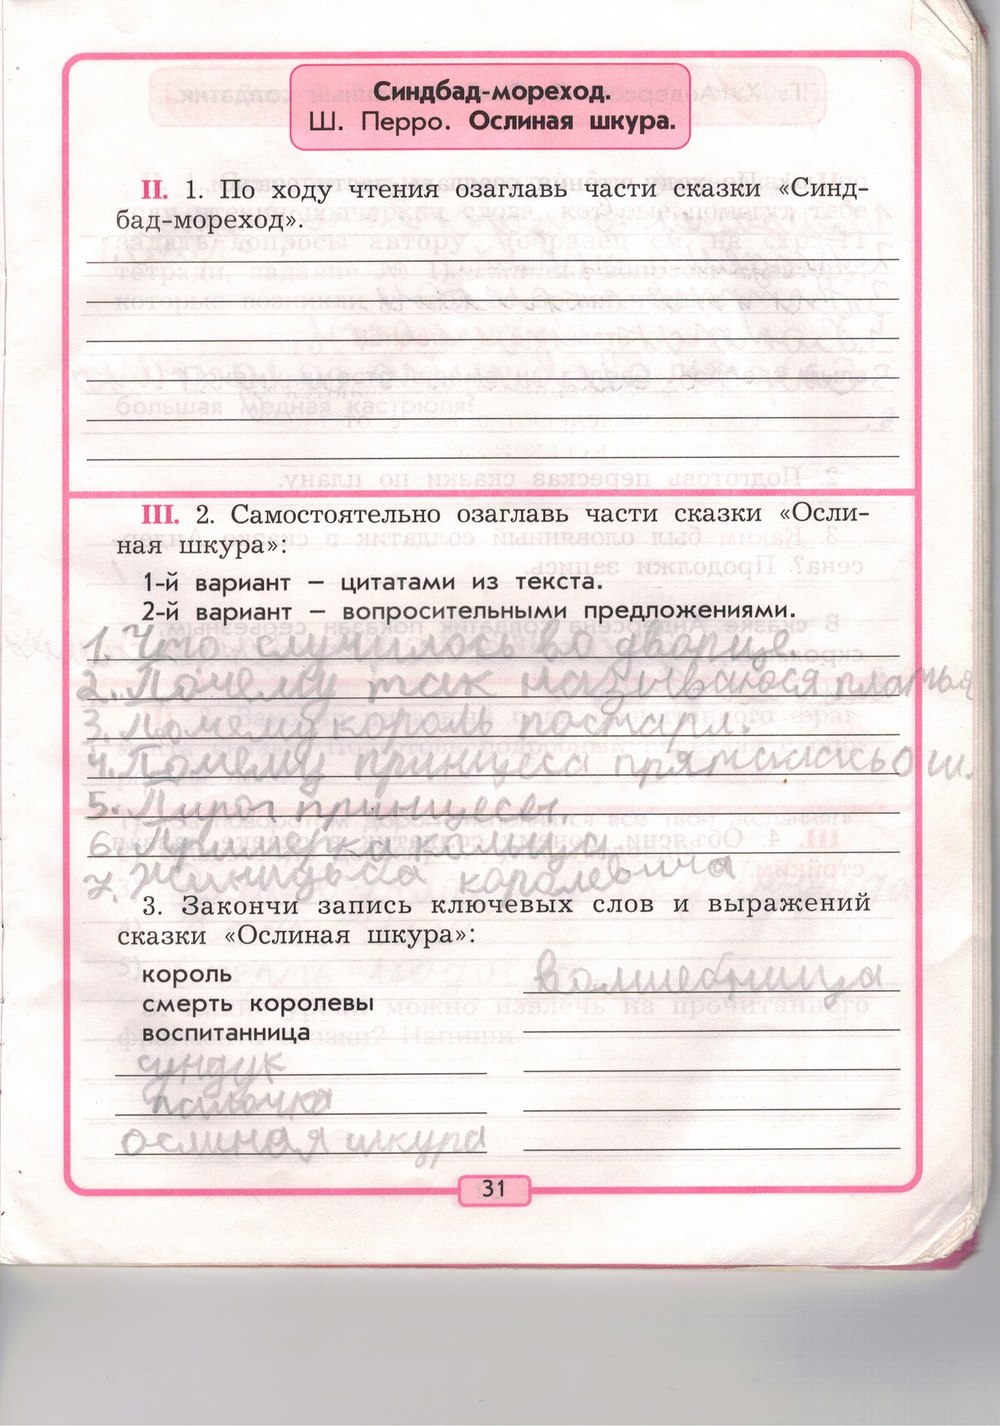 Синдбад-мореход.
Ш. Перро. Ослиная шкура.
II. 1. По ходу чтения озаглавь части сказки «Синд-
бад-мореход».
III. 2. Самостоятельно озаглавь части сказки «Осли-
ная шкура»:
1-й вариант – цитатами из текста.
2-й вариант – вопросительными предложениями.
1. Что случилось во дворце.
2. Почему так называются платья
3. Почему король постарл.
4. Почему принцеса пряталась о ш.
5. Пирог принцесы
6. Примерка кольца
7. королевича
3. Закончи запись ключевых слов и выражений
сказки «Ослиная шкура»:
король
волшебница
смерть королевы
воспитанница
сундук
палочка
ослиная шкура
31